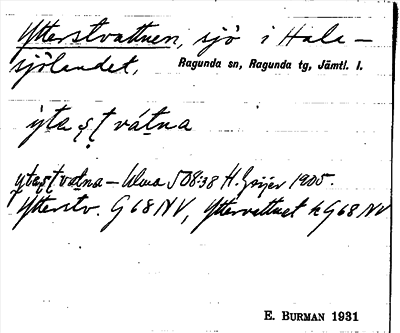 Ytterstvattnen, sjö i Hala-
sjölandet, Ragunda sn, Ragunda tg, Jämtl. l.
yta ṣṭ vátna
ytaṣṭvatna – 508:38 H. Geijer 1905.
Ytterstv. G68NV, Yttervattnet hG68NV
E. BURMAN 1931